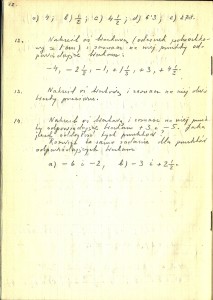 a) 4; b) 1/2; c) 4 1/2; d) 63; e) 678.
12. Nakreśl oś liczbową (odcinek jednostko-
wy = 1 cm) i zaznacz na niej punkty od-
powiadające liczbom:
-4, -2 1/2, -1, +1 1/2, +3, +4 1/2.
13. Nakreśl oś liczbową i zaznacz na niej dwie
liczby
14. Nakreśl oś liczbową i zaznacz na niej punk-
ty odpowiadające liczbom +3 i -5. Jaka
jest odległość tych punktów?
Rozwiąż to samo zadanie dla punktów
odpowiadających liczbom
a) -6 i -2, b) -3 i +2 1/2.